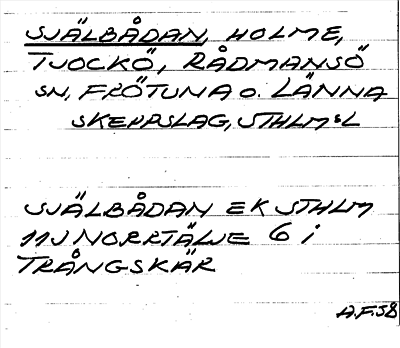 SJÄLBÅDAN, HOLME,
TJOCKÖ, RÅDMANSÖ
SN, FRÖTUNA O. LÄNNA
SKEPPSLAG, STHLM:L
SJÄLBÅDAN EK STHLM
11J NORRTÄLJE 6 i
TRÅNGSKÄR
A.F.58